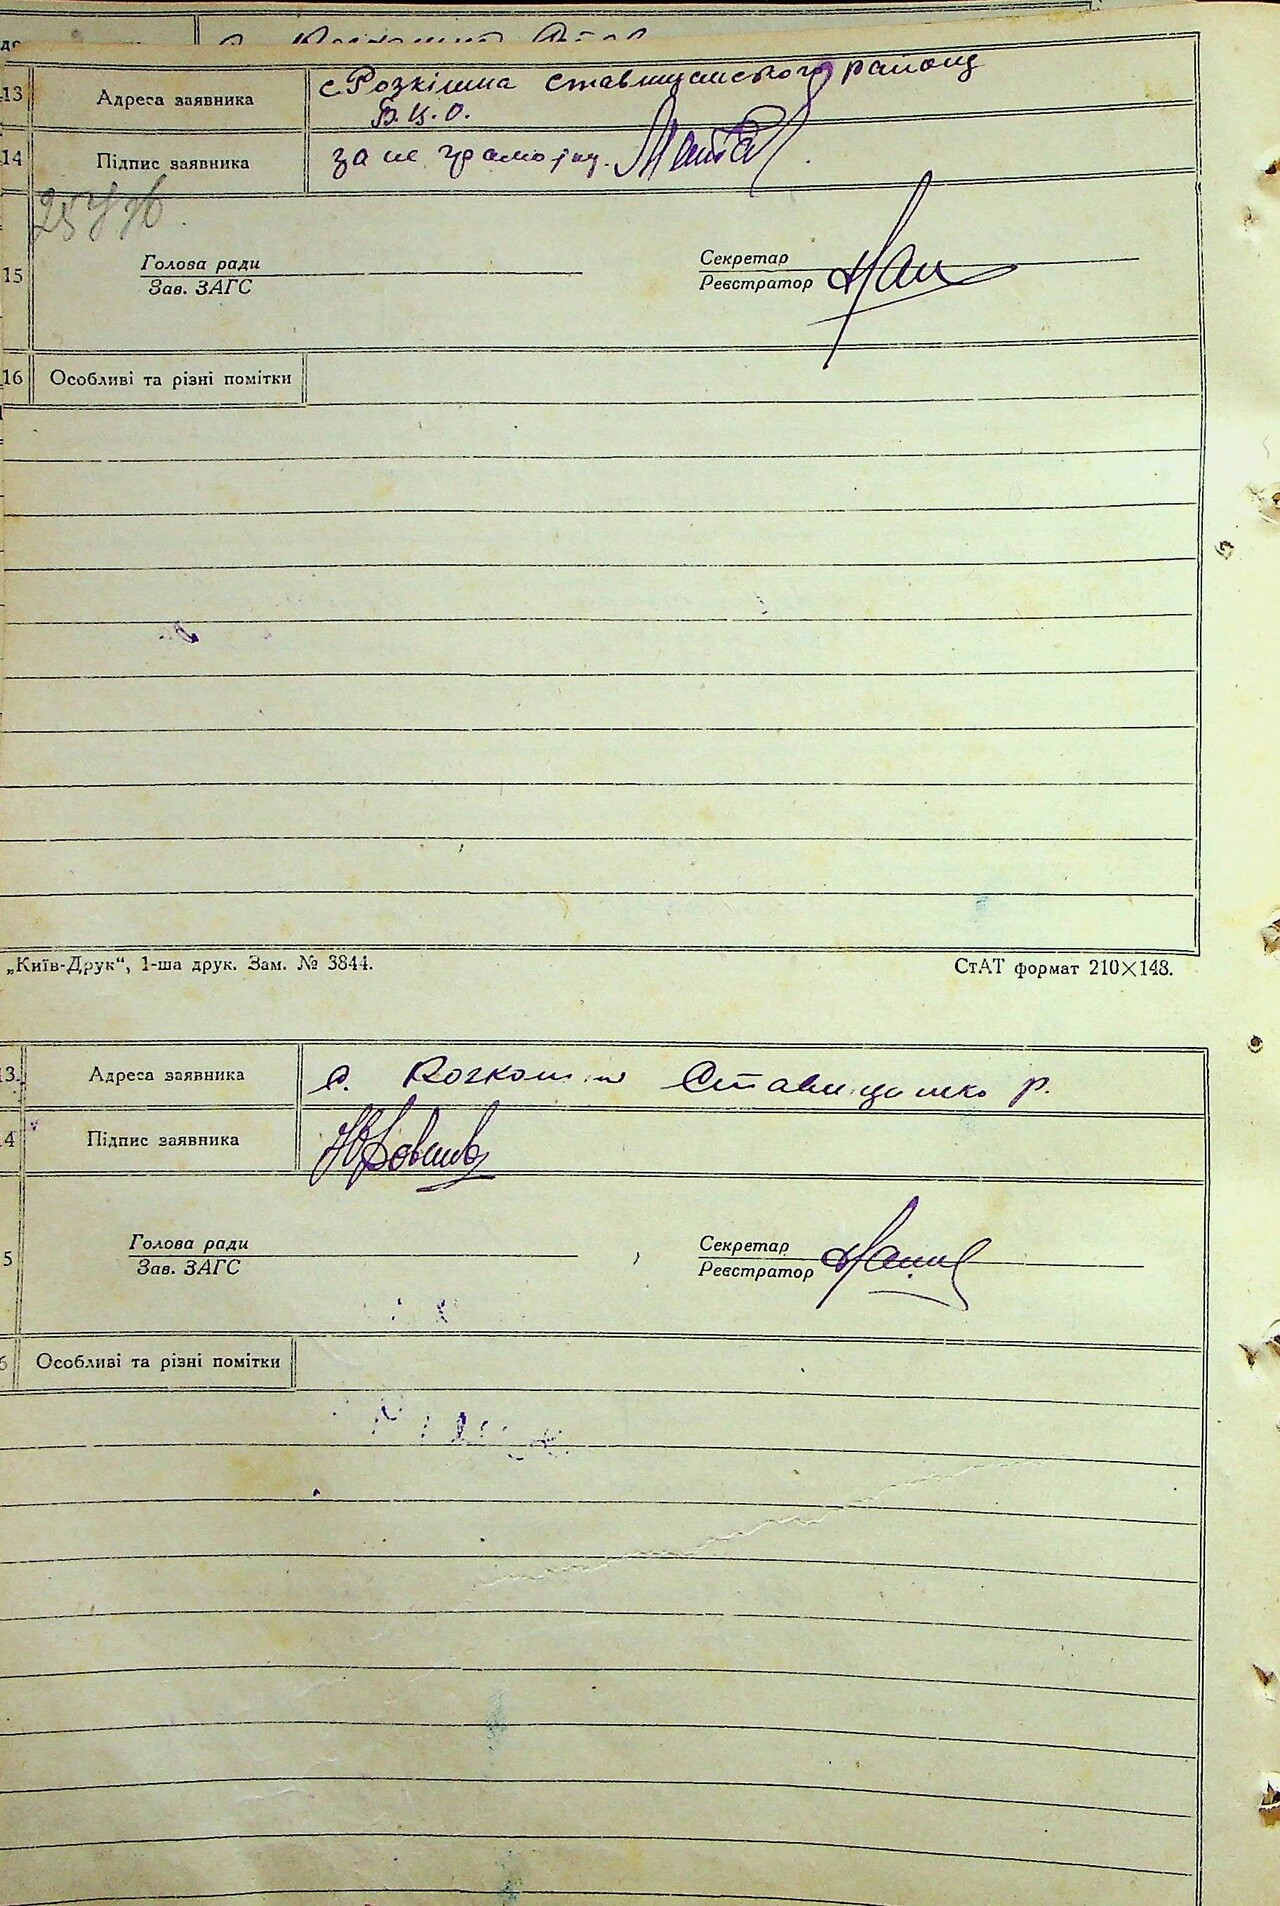 13 Адреса заявника с. Розкішна Ставищанського району
Б.Ц.О.
14 Підпис заявника за не грамотну.
15 Голова ради
Зав. ЗАГС
Секретар
Реєстратор
16 Особливі та різні помітки
„Київ-Друк“, 1-ша друк. Зам. № 3844. СтАТ формат 210×148.
13. Адреса заявника с. р.
4 Підпис заявника
5 Голова ради
Зав. ЗАГС
Секретар
Реєстратор
6 Особливі та різні помітки